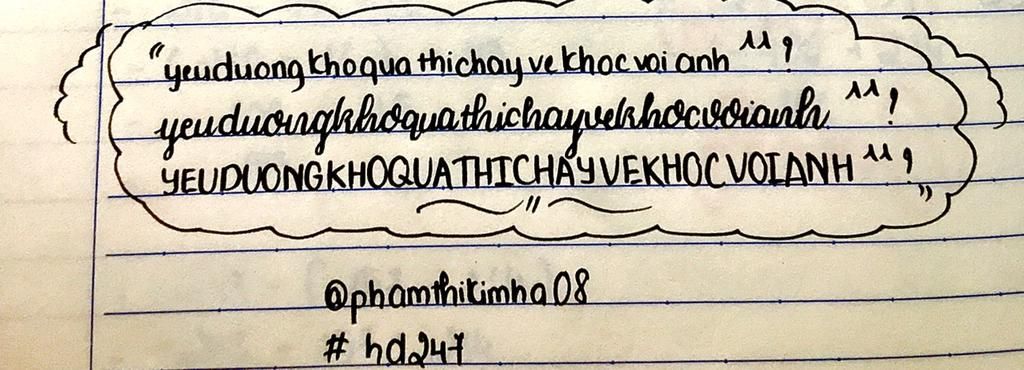 "yeuduongkhoquathichayvekhocvoianh ^^ ?
yeuduongkhoquathichayvekhocvoianh ^^ !
YEUDUONGKHOQUATHICHAYVEKHOCVOIANH ^^ ?
"
@phamthikimha08
# hd247